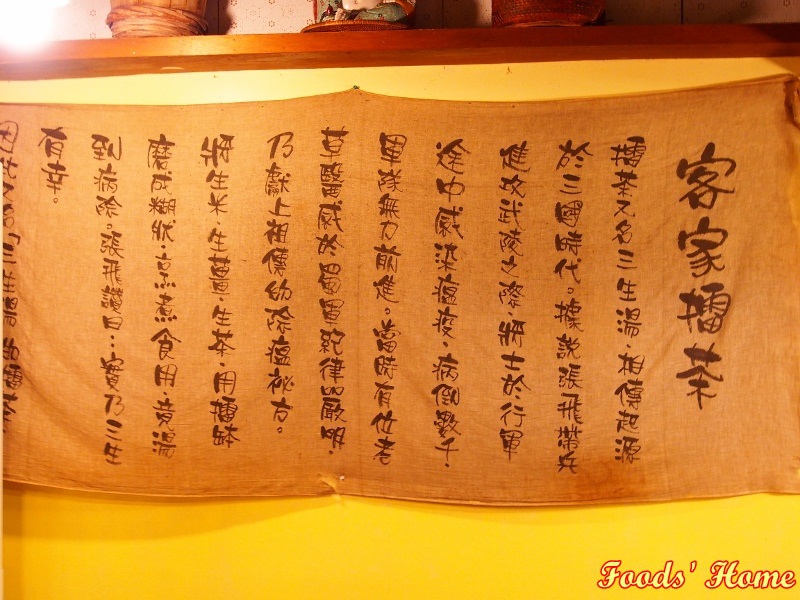 客家擂茶
擂茶又名三生湯,相傳起源
於三國時代。據說張飛帶兵
進攻武陵之際,將士於行軍
途中感染瘟疫,病倒數千,
軍隊無力前進。當時有位老
草醫感於蜀軍紀律嚴明,
乃獻上祖傳的除瘟祕方。
將生米、生薑、生茶,用擂缽
磨成糊狀,烹煮食用,竟湯
到病除。張飛讚曰:實乃三生
有幸。
因此又名「三生湯
擂茶
Foods' Home